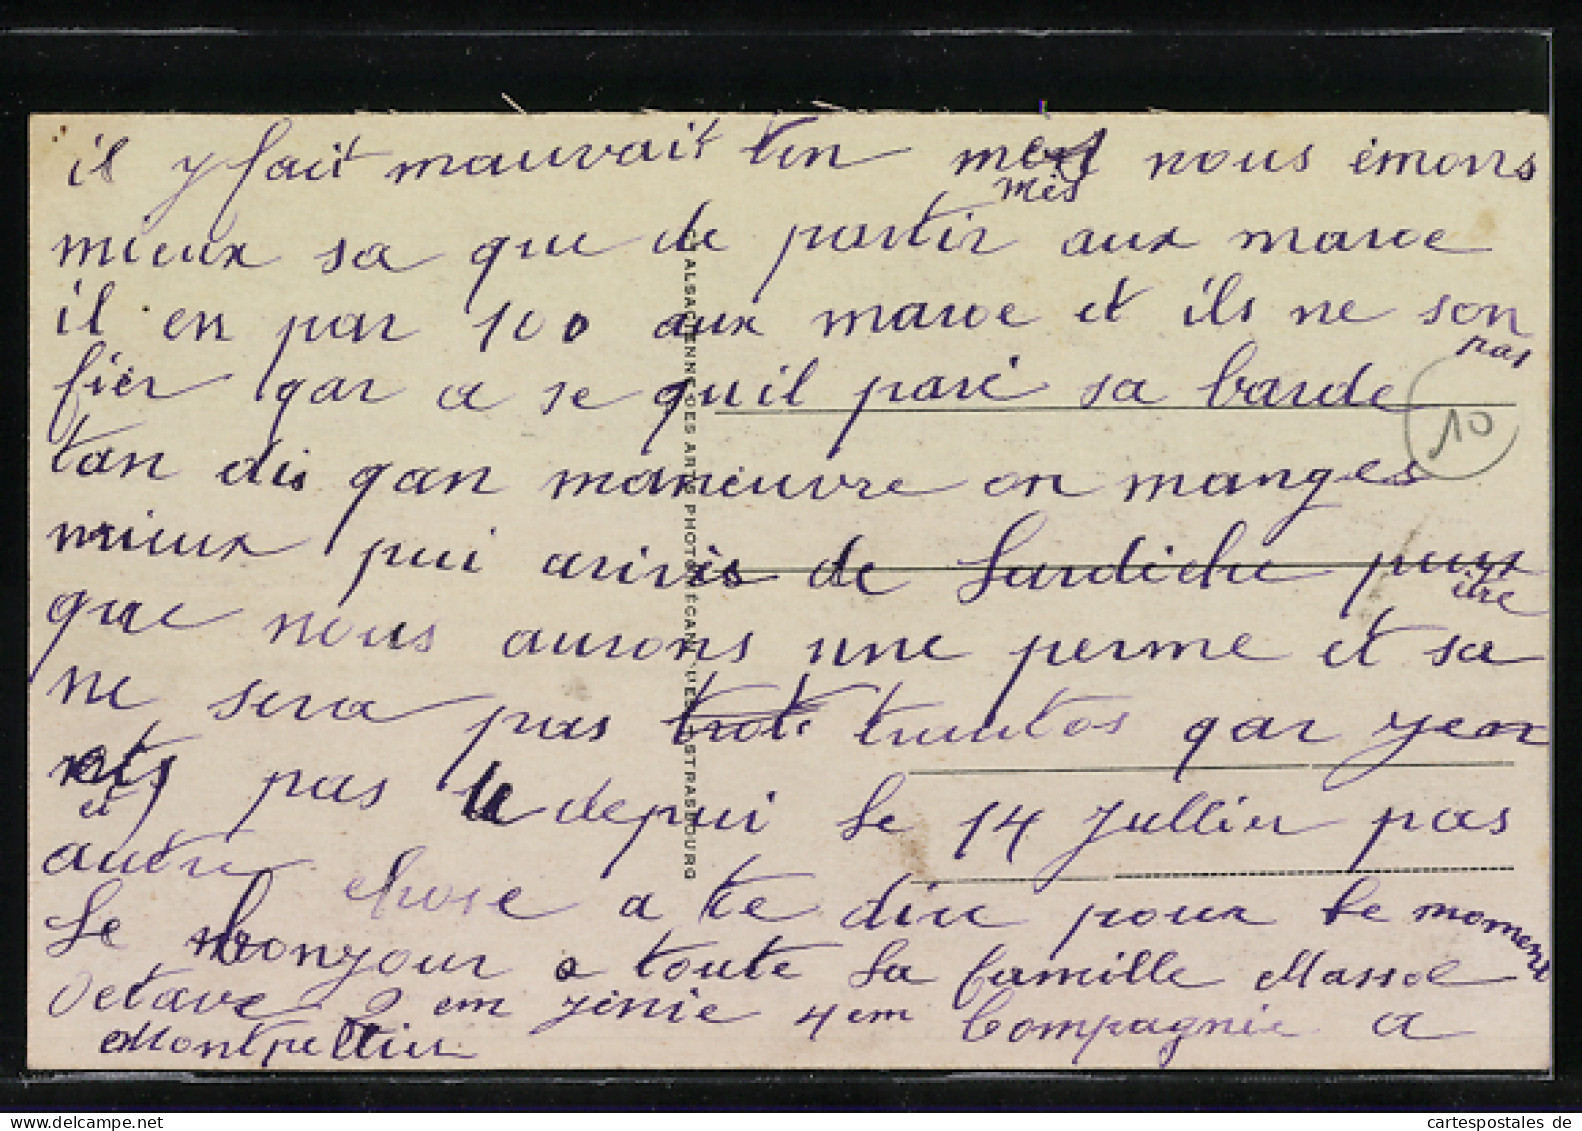 il y fait mauvait tin mes nous èmons
mis
mieux sa que de partir aux maroe
il en par 100 aux maroe et ils ne son
pas
fier gar a se qu il parè sa barde
tan dis qan maneuvre on manges
mieux pui arivis de Lardiche peux
être
que nous aurons une perme et sa
ne sera pas trantos qar yen
ets
a pas le depui le 14 Jullier pas
autre chose a te dire pour le moment
Le bonjour a toute la famille Massol
Octave 2 em jénie 4em Compagnie a
Montpellier
10
ALSACIENNE DES ARTS PHOTOMÉCANIQUES STRASBOURG
cartespostales de